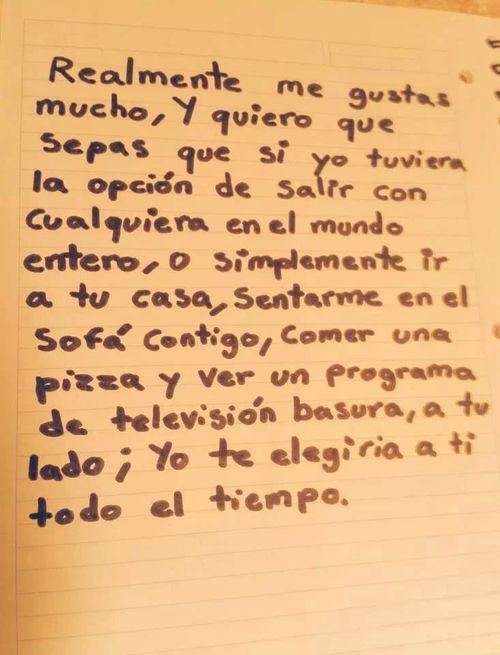 Realmente me gustas
mucho, Y quiero que
sepas que si yo tuviera
la opción de salir con
cualquiera en el mundo
entero, o simplemente ir
a tu casa, sentarme en el
sofá contigo, comer una
pizza y ver un programa
de televisión basura, a tu
lado; Yo te elegiria a ti
todo el tiempo.